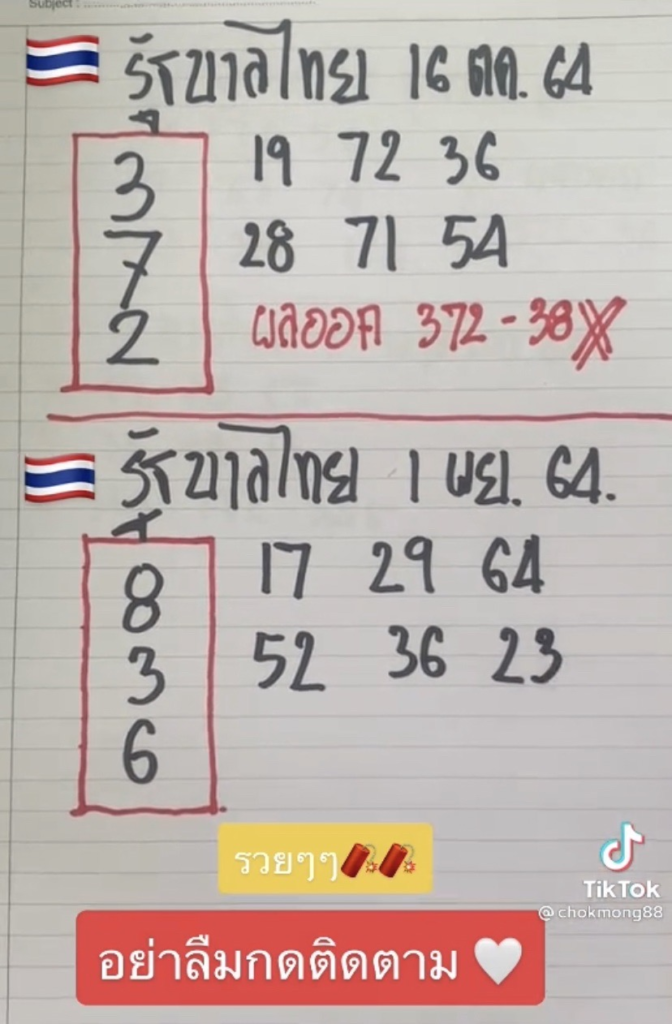 Subject :
รัฐบาลไทย 16 ตค. 64
3 19 72 36
7 28 71 54
2 ผลออก 372 - 38
รัฐบาลไทย 1 พย. 64.
8 17 29 64
3 52 36 23
6
รวยๆๆ
TikTok
@chokmong88
อย่าลืมกดติดตาม